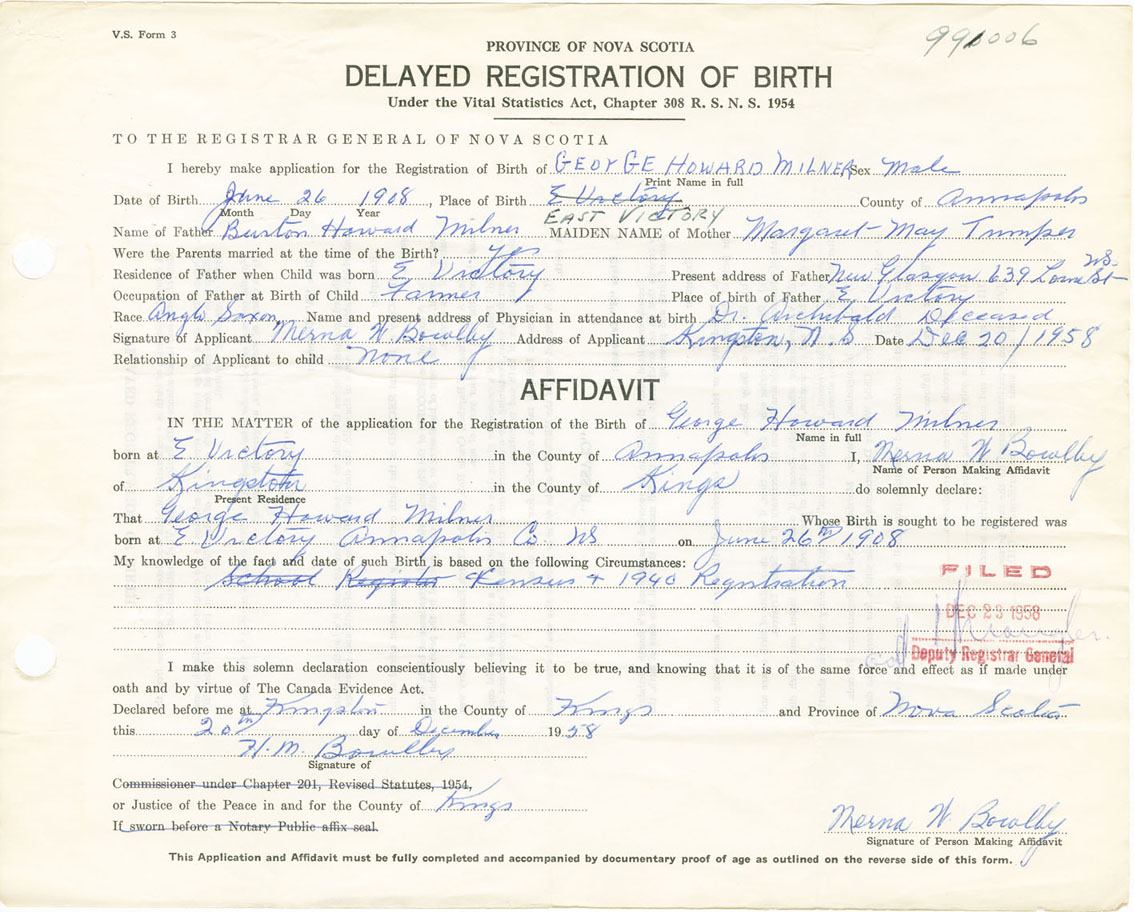 V.S. Form 3
991006
PROVINCE OF NOVA SCOTIA
DELAYED REGISTRATION OF BIRTH
Under the Vital Statistics Act, Chapter 308 R. S. N. S. 1954
TO THE REGISTRAR GENERAL OF NOVA SCOTIA
I hereby make application for the Registration of Birth of GEORGE HOWARD MILNER Sex Male
Print Name in full
Date of Birth June 26 1908, Place of Birth E Victory County of Annapolis
Month Day Year EAST VICTORY
Name of Father Burton Howard Milner MAIDEN NAME of Mother Margaret May Trimper
Were the Parents married at the time of the Birth? Yes
Residence of Father when Child was born E Victory Present address of Father New Glasgow 639 St NS.
Occupation of Father at Birth of Child Farmer Place of birth of Father E Victory
Race Anglo Saxon, Name and present address of Physician in attendance at birth Dr. Archibald Deceased
Signature of Applicant Merna W Bowlby Address of Applicant Kingston, N. S Date Dec 20 / 1958
Relationship of Applicant to child None
AFFIDAVIT
IN THE MATTER of the application for the Registration of the Birth of George Howard Milner
Name in full
born at E Victory in the County of Annapolis I, Merna W Bowlby
Name of Person Making Affidavit
of Kingston in the County of Kings do solemnly declare:
Present Residence
That George Howard Milner Whose Birth is sought to be registered was
born at E Victory Annapolis Co NS on June 26th 1908
My knowledge of the fact and date of such Birth is based on the following Circumstances:
School Register Census + 1940 Registration
FILED
DEC 23 1958
Deputy Registrar General
I make this solemn declaration conscientiously believing it to be true, and knowing that it is of the same force and effect as if made under
oath and by virtue of The Canada Evidence Act.
Declared before me at Kingston in the County of Kings and Province of Nova Scotia
this 20th day of December 1958
H. M. Bowlby
Signature of
Commissioner under Chapter 201, Revised Statutes, 1954,
or Justice of the Peace in and for the County of Kings
If sworn before a Notary Public affix seal.
Merna W. Bowlby
Signature of Person Making Affidavit
This Application and Affidavit must be fully completed and accompanied by documentary proof of age as outlined on the reverse side of this form.